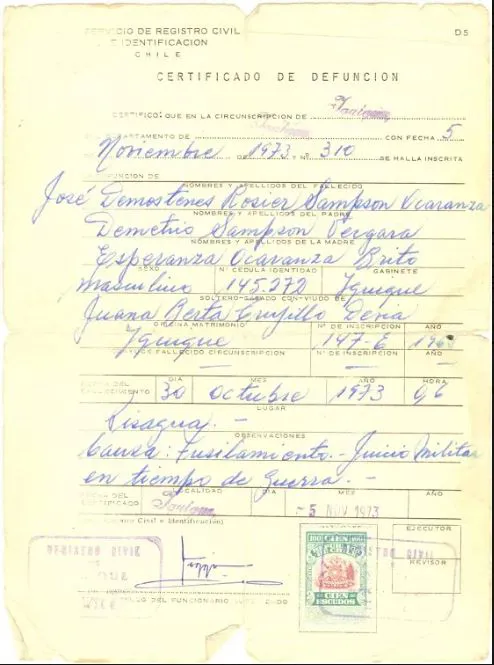 SERVICIO DE REGISTRO CIVIL D5
E IDENTIFICACION
CHILE
CERTIFICADO DE DEFUNCION
CERTIFICO: QUE EN LA CIRCUNSCRIPCION DE Iquique
DEPARTAMENTO DE CON FECHA 5
Noviembre DE 1973 Y Nº 310 SE HALLA INSCRITA
DEFUNCION DE
NOMBRES Y APELLIDOS DEL FALLECIDO
José Demostenes Rosier Sampson Ocaranza
NOMBRES Y APELLIDOS DEL PADRE
Demetrio Sampson Vergara
NOMBRES Y APELLIDOS DE LA MADRE
Esperanza Ocaranza Brito
SEXO Nº CEDULA IDENTIDAD GABINETE
masculino 145.272 Iquique
SOLTERO-CASADO CON-VIUDO DE
Juana Berta Trujillo
OFICINA MATRIMONIO Nº DE INSCRIPCION AÑO
Iquique 147-E
FALLECIDO CIRCUNSCRIPCION Nº DE INSCRIPCION AÑO
— — —
FECHA DEL DIA MES AÑO HORA
FALLECIMIENTO 30 octubre 1973 06
LUGAR
Pisagua.-
OBSERVACIONES
Causa: Fusilamiento.- Juicio Militar
en tiempo de Guerra.-
FECHA DEL LOCALIDAD DIA MES AÑO
CERTIFICADO Iquique - 5 NOV 1973
Civil e Identificación)
EJECUTOR
REVISOR
REGISTRO CIVIL
REGISTRO CIVIL
CHILE
CIEN
ESCUDOS
DEL FUNCIONARIO